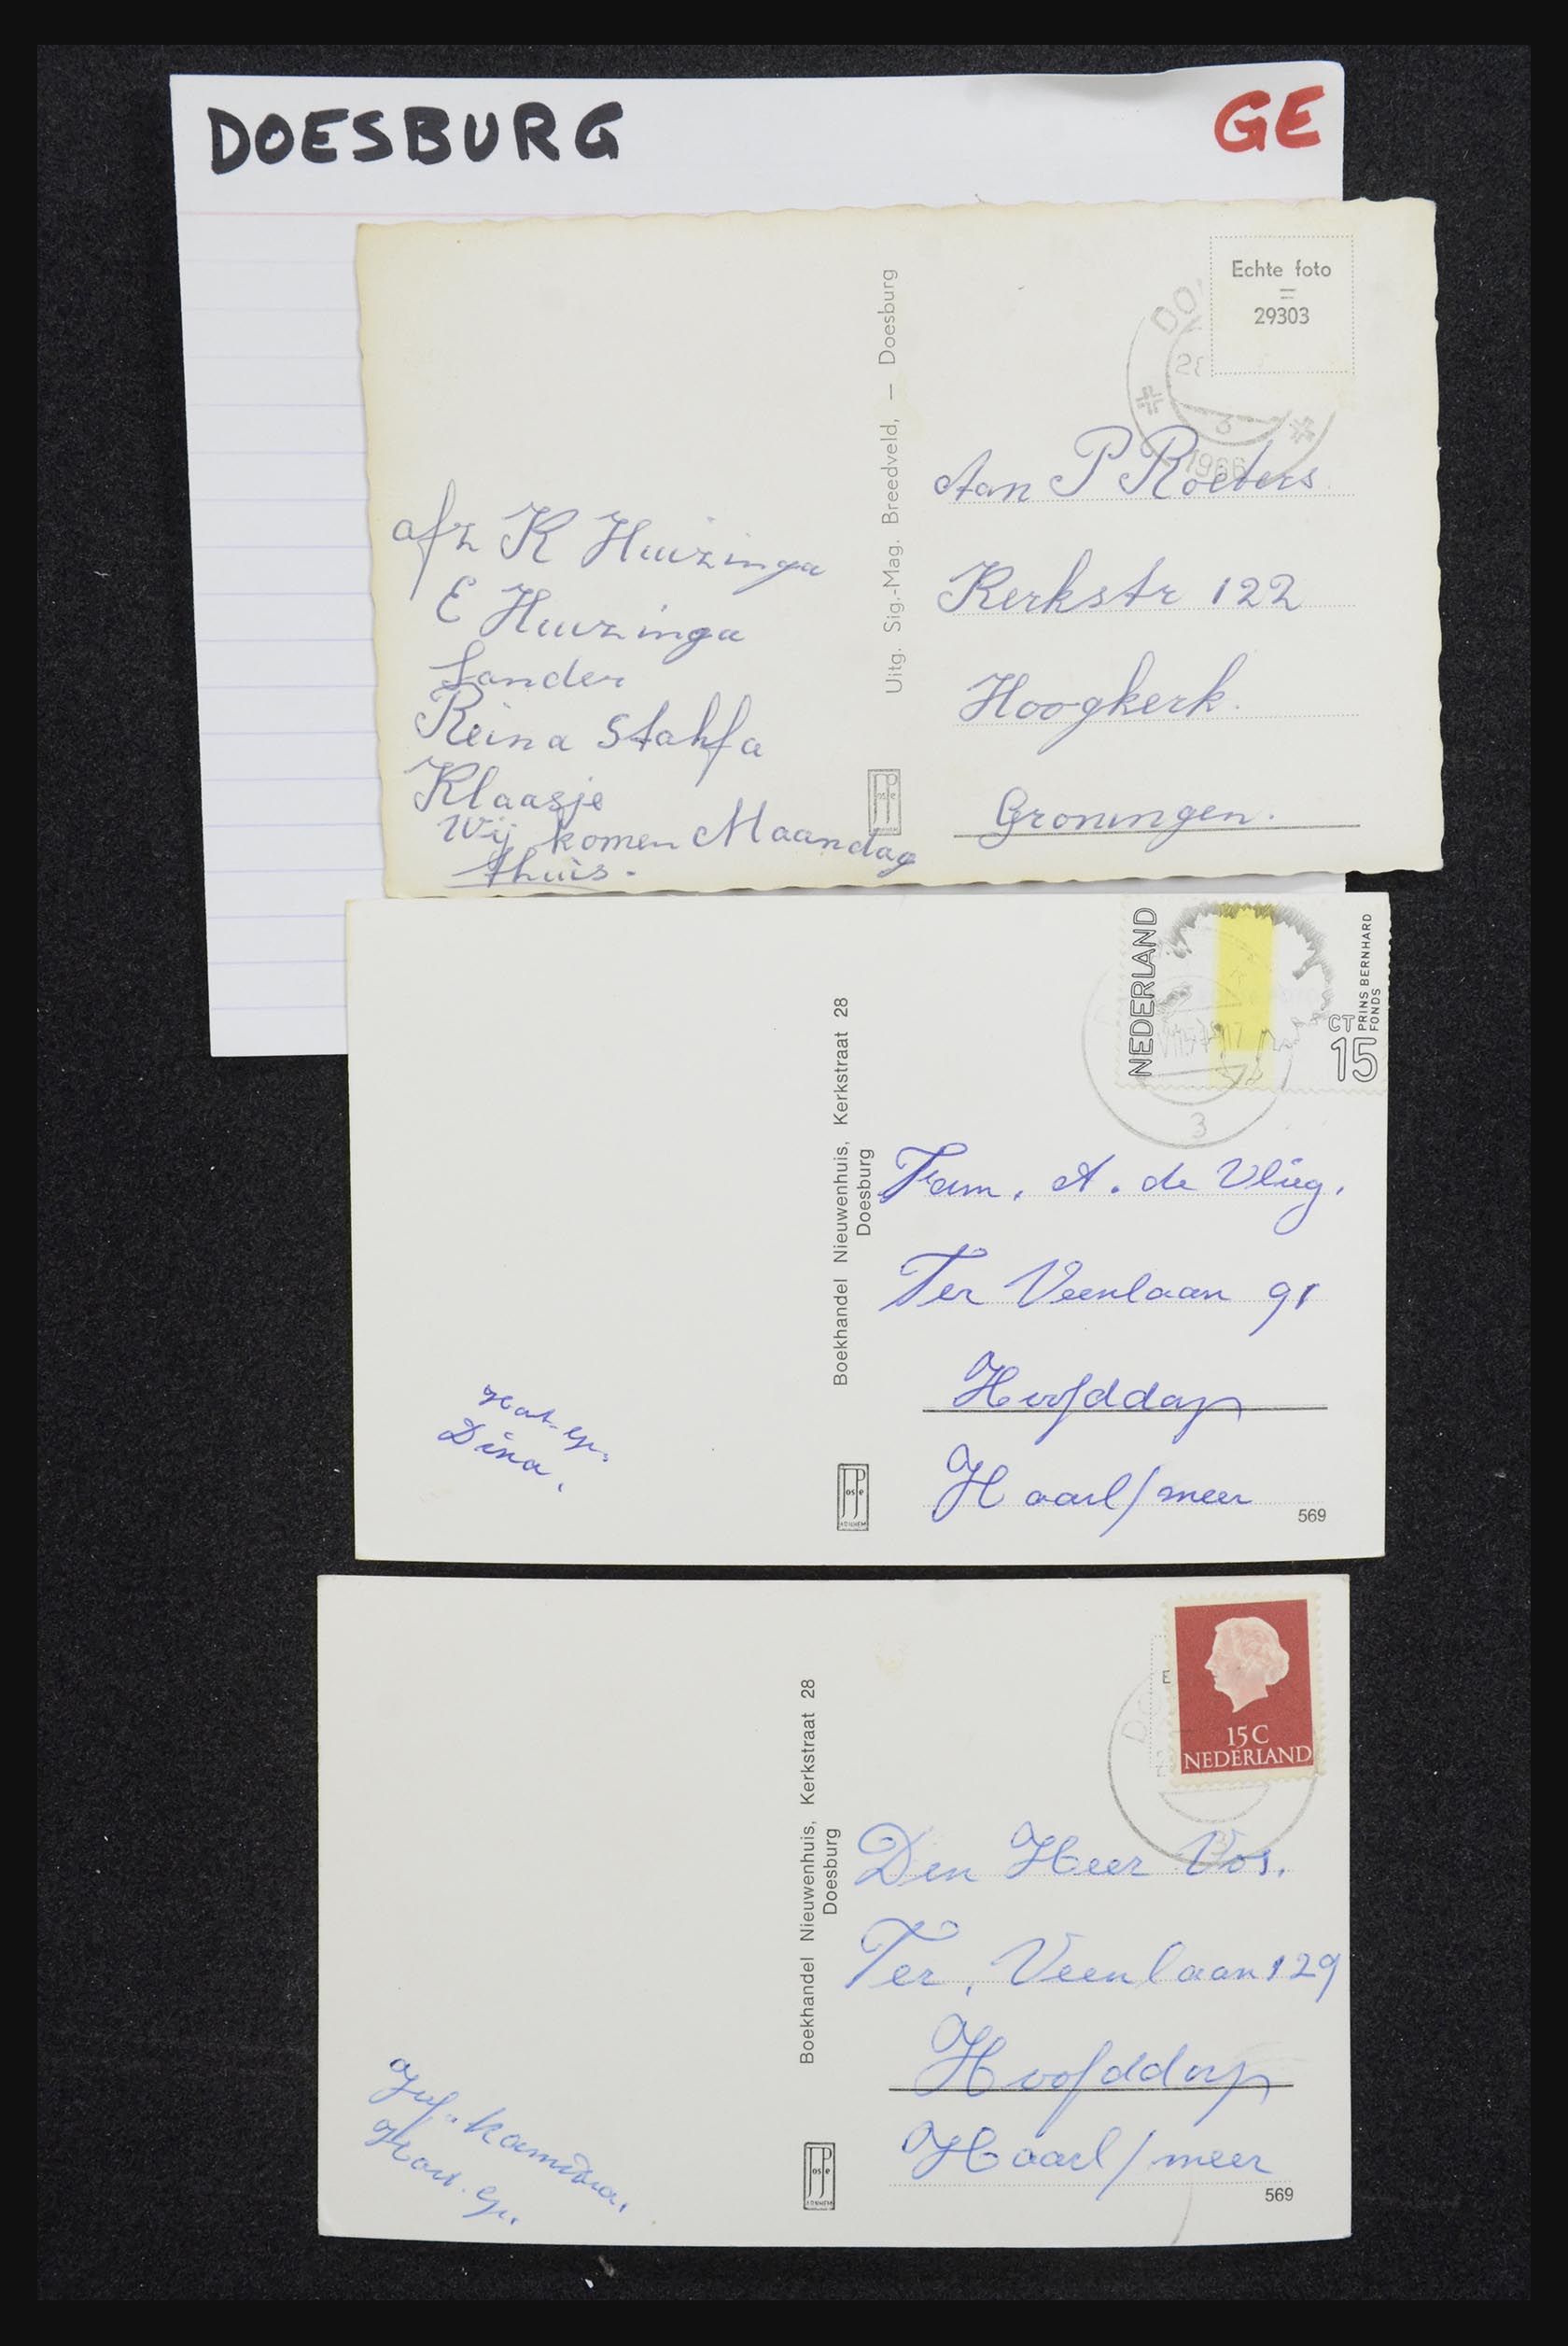 DOESBURG
GE
Echte foto
=
29303
DO
28
3
1966
Uitg. Sig.-Mag. Breedveld, — Doesburg
Aan P Roeters
Kerkstr 122
Hoogkerk.
Groningen.
afz K Huizinga
E Huizinga
Sander
Reina Stahfa
Klaasje
Wij komen Maandag
thuis.
NEDERLAND
CT
15
PRINS BERNHARD
FONDS
3
Boekhandel Nieuwenhuis, Kerkstraat 28
Doesburg
Fam. A. de Vlieg.
Ter Veenlaan 91
Hoofddorp
Haarl/meer
Hart. gr.
Dina.
JosPe
ARNHEM
569
15 C
NEDERLAND
E
DO
Boekhandel Nieuwenhuis, Kerkstraat 28
Doesburg
Den Heer Vos.
Ter. Veenlaan 129
Hoofddorp
Haarl/meer
Hart. gr.
JosPe
ARNHEM
569